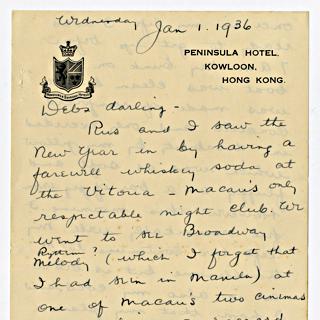 Wednesday Jan 1. 1936
PENINSULA HOTEL.
KOWLOON,
HONG KONG.
Debs darling -
Rus and I saw the
New Year in by having a
farewell whiskey soda at
the Vitoria - Macau's only
respectable night club. We
went to see Broadway
Rythm?
Melody (which I forget that
I had seen in Manila) at
one of Macau's two cinemas